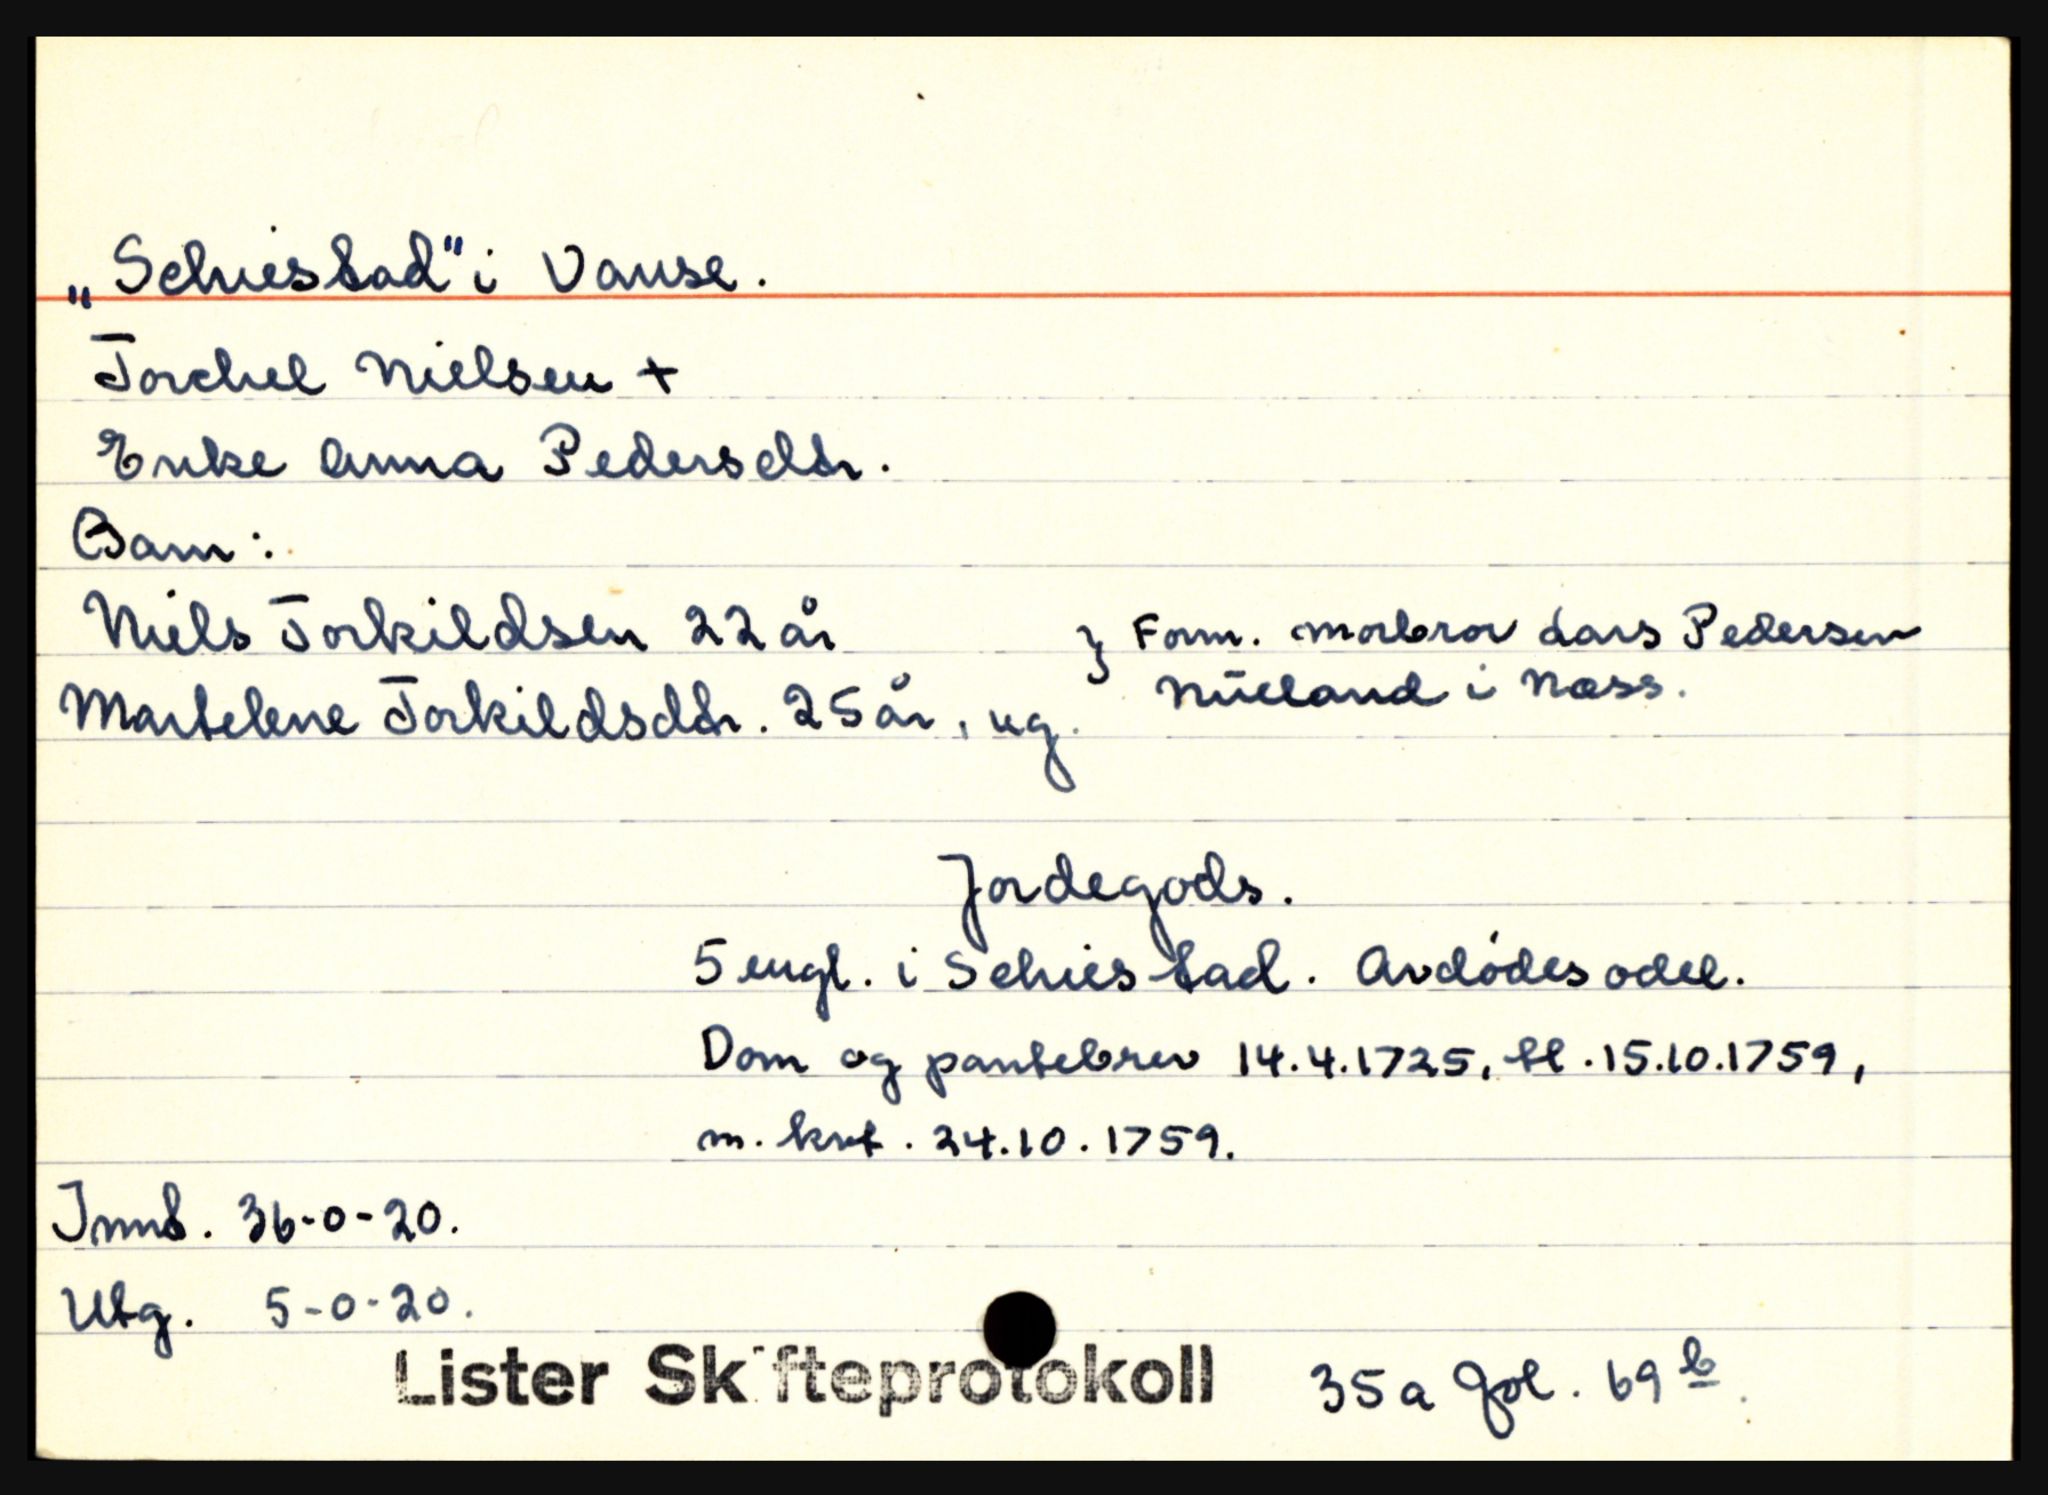 „Schiestad" i Vanse.
Torchel Nielsen +
Enke Anna Pedersdtr.
Barn:
Niels Torkildsen 22 år } Form. morbror Lars Pedersen
Martelene Torkildsdtr. 25 år, ug. Nüeland i Næss.
Jordegods.
5 engl. i Schiestad. Avdødes odel.
Dom og pantebrev 14.4.1725, tl. 15.10.1759,
m. kvt. 24.10.1759.
Innb. 36-0-20.
Utg. 5-0-20.
Lister Skifteprotokoll 35a fol. 69 b.